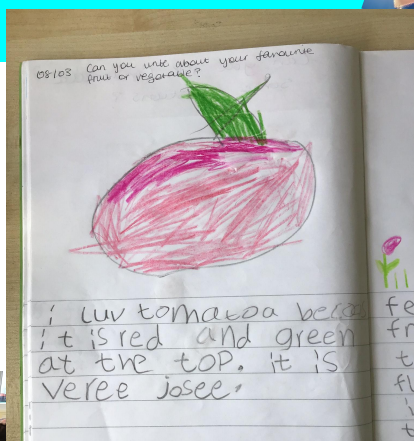 08/03 Can you write about your favourite
fruit or vegetable?
i luv tomatoa beca
it is red and green
at the top. it is
veree josee.
fe
fr
t
fl
i
t